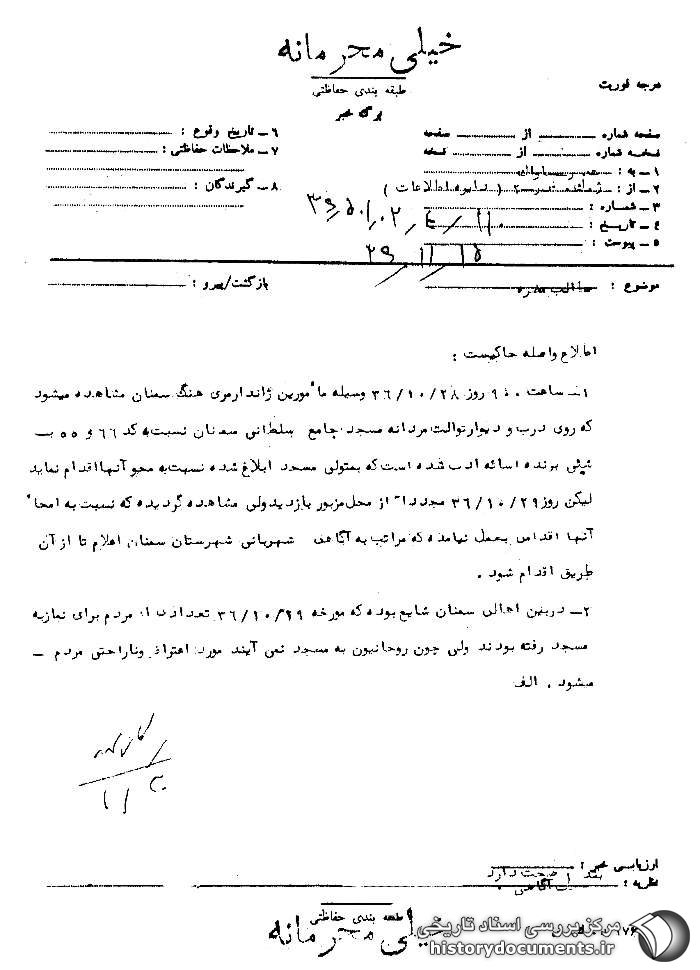 خیلی محرمانه
طبقه بندی حفاظتی
برگ خبر
درجه فوریت
صفحه شماره از صفحه
نسخه شماره از نسخه
۱ـ به :
۲ـ از : ( دایره اطلاعات )
۳ـ شماره :
۴ـ تاریخ :
۵ـ پیوست :
۶ـ تاریخ وقوع :
۷ـ ملاحظات حفاظتی :
۸ـ گیرندگان :
موضوع :
بازگشت/پیرو :
اطلاع واصله حاکیست :
۱ـ ساعت ۹۰۰ روز ۳۶/۱۰/۲۸ وسیله مأمورین ژاندارمری هنگ سمنان مشاهده میشود
که روی درب و دیوار توالت مردانه مسجد جامع سلطانی سمنان نسبت به کد ۶۶ و ۵۵ بـ
شیئی برنده اسائه ادب شده است که بمتولی مسجد ابلاغ شده نسبت به محو آنها اقدام نماید
لیکن روز ۳۶/۱۰/۲۹ مجددا" از محل مزبور بازدید ولی مشاهده گردیده که نسبت به امحا"
آنها اقدامی بعمل نیامده که مراتب به آگاهی شهربانی شهرستان سمنان اعلام تا از آن
طریق اقدام شود .
۲ـ در بین اهالی سمنان شایع بوده که مورخه ۳۶/۱۰/۲۹ تعدادی از مردم برای نماز به
مسجد رفته بودند ولی چون روحانیون به مسجد نمی آیند مورد اعتراض و ناراحتی مردم ـ
میشود . الف
ارزیابی خبر : صحت دارد
نظریه :
طبقه بندی حفاظتی
خیلی محرمانه
مرکز بررسی اسناد تاریخی
historydocuments.ir